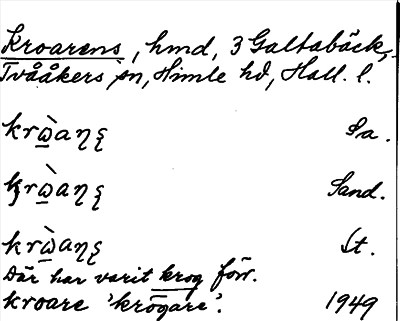 Kroarens, hmd, 3 Galtabäck,
Tvååkers sn, Himle hd, Hall. l.
krὼ̲aηꞩ Sa.
krὼ̲aηꞩ Sand.
krὼ̲aηꞩ St.
Där har varit krog förr.
kroare 'krögare'. 1949